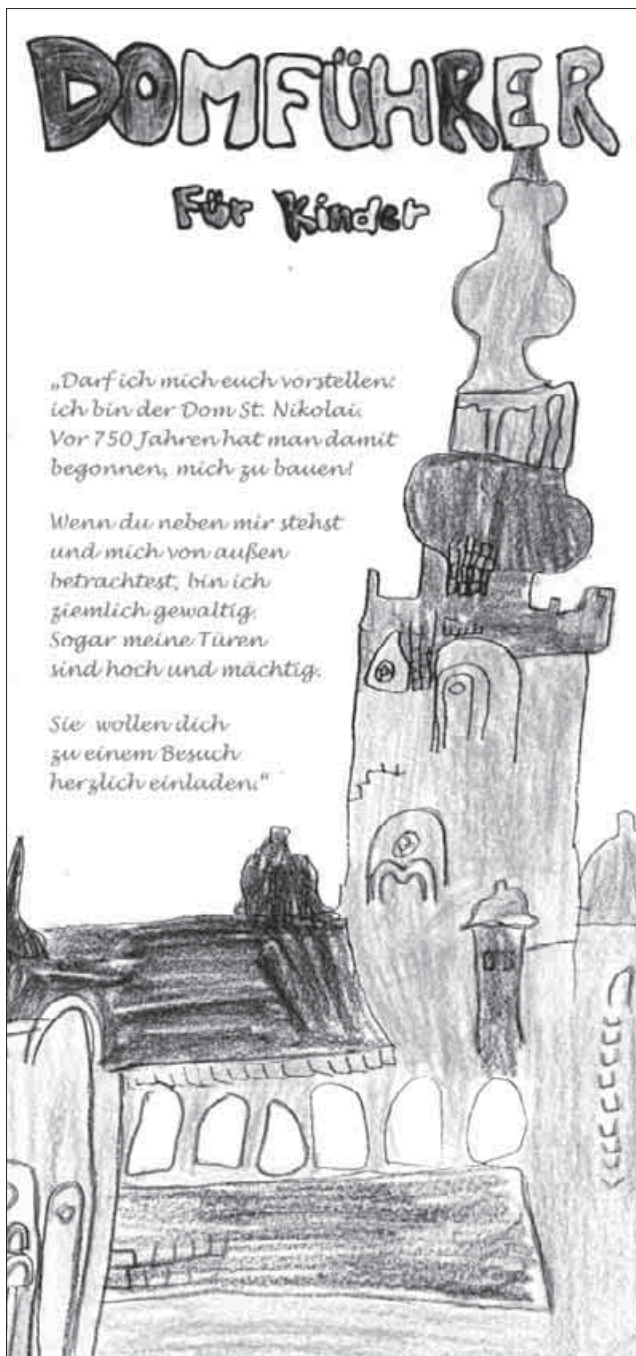 DOMFÜHRER
Für Kinder
„Darf ich mich euch vorstellen:
ich bin der Dom St. Nikolai.
Vor 750 Jahren hat man damit
begonnen, mich zu bauen!
Wenn du neben mir stehst
und mich von außen
betrachtest, bin ich
ziemlich gewaltig.
Sogar meine Türen
sind hoch und mächtig.
Sie wollen dich
zu einem Besuch
herzlich einladen.“